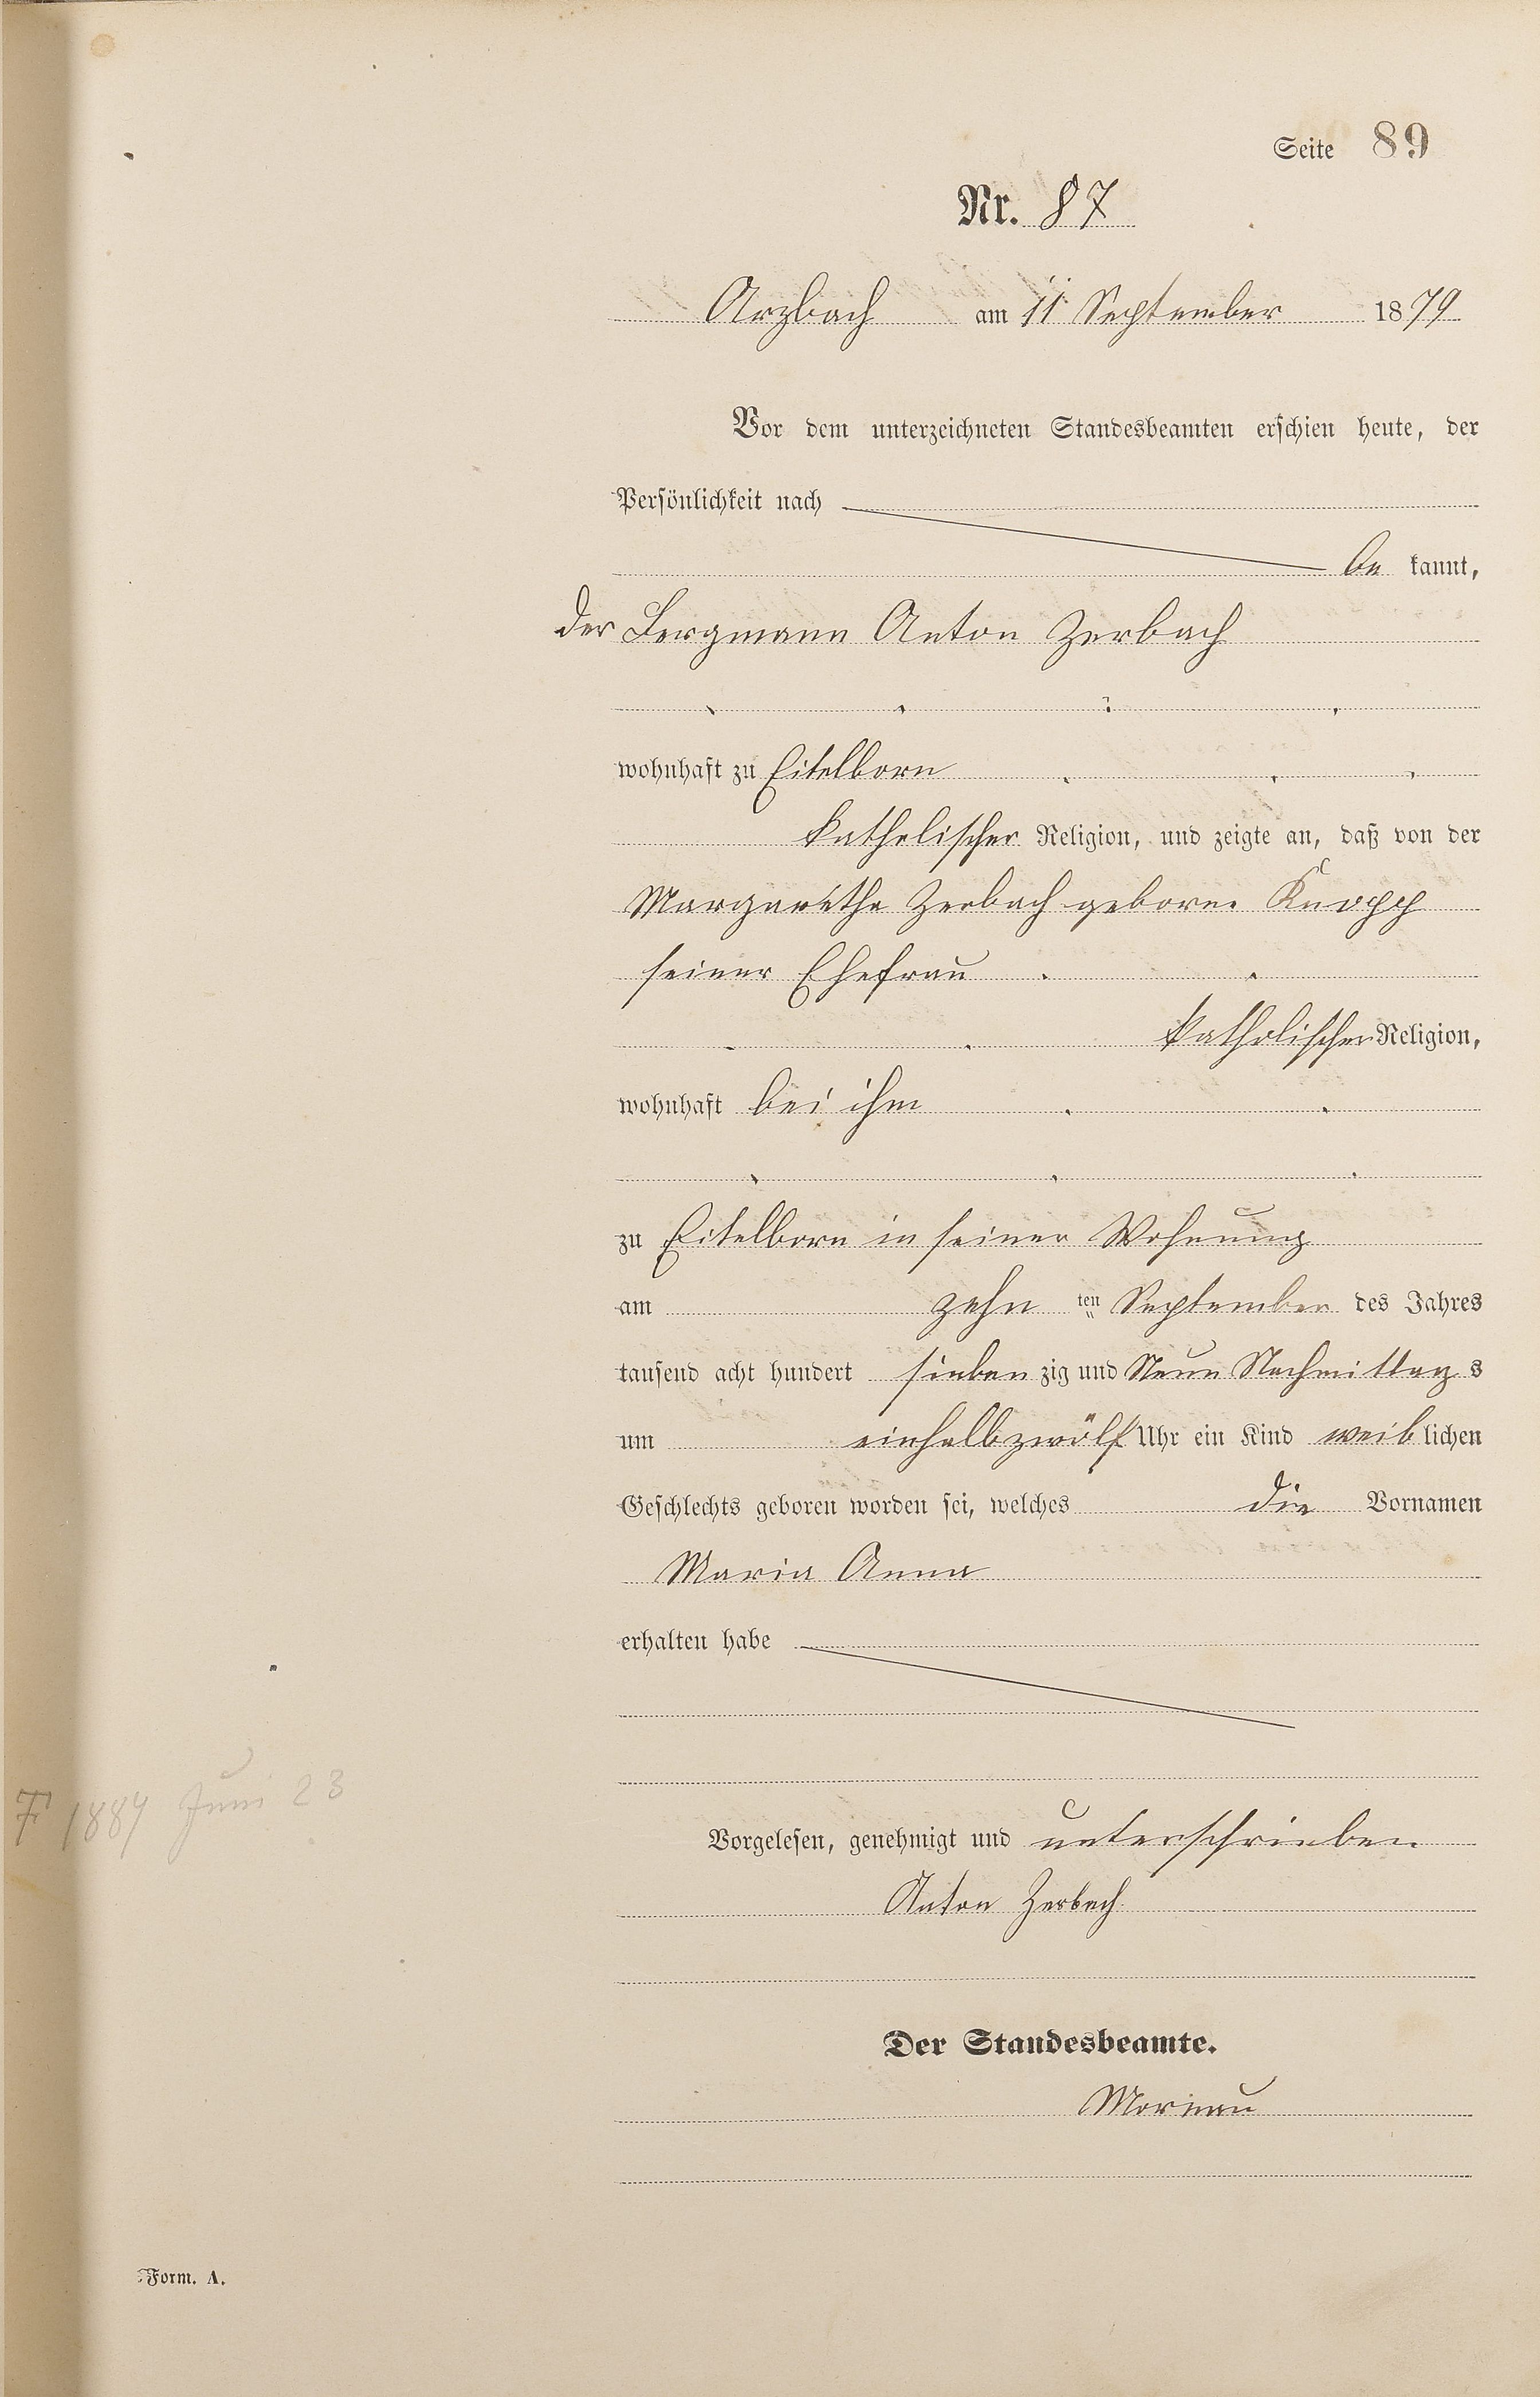 Seite 89
Nr. 87
Arzbach am 11 September 1879
Vor dem unterzeichneten Standesbeamten erschien heute, der
Persönlichkeit nach
be kannt,
der Bergmann Anton Zerbach
wohnhaft zu Eitelborn
katholischer Religion, und zeigte an, daß von der
Margaretha Zerbach geborne Knopp
seiner Ehefrau
katholischer Religion,
wohnhaft bei ihm
zu Eitelborn in seiner Wohnung
am zehn ten September des Jahres
tausend acht hundert sieben zig und Neun Nachmittag s
um einhalbzwölf Uhr ein Kind weib lichen
Geschlechts geboren worden sei, welches die Vornamen
Maria Anna
erhalten habe
1884 Juni 23
Vorgelesen, genehmigt und unterschrieben
Anton Zerbach
Der Standesbeamte.
Form. A.